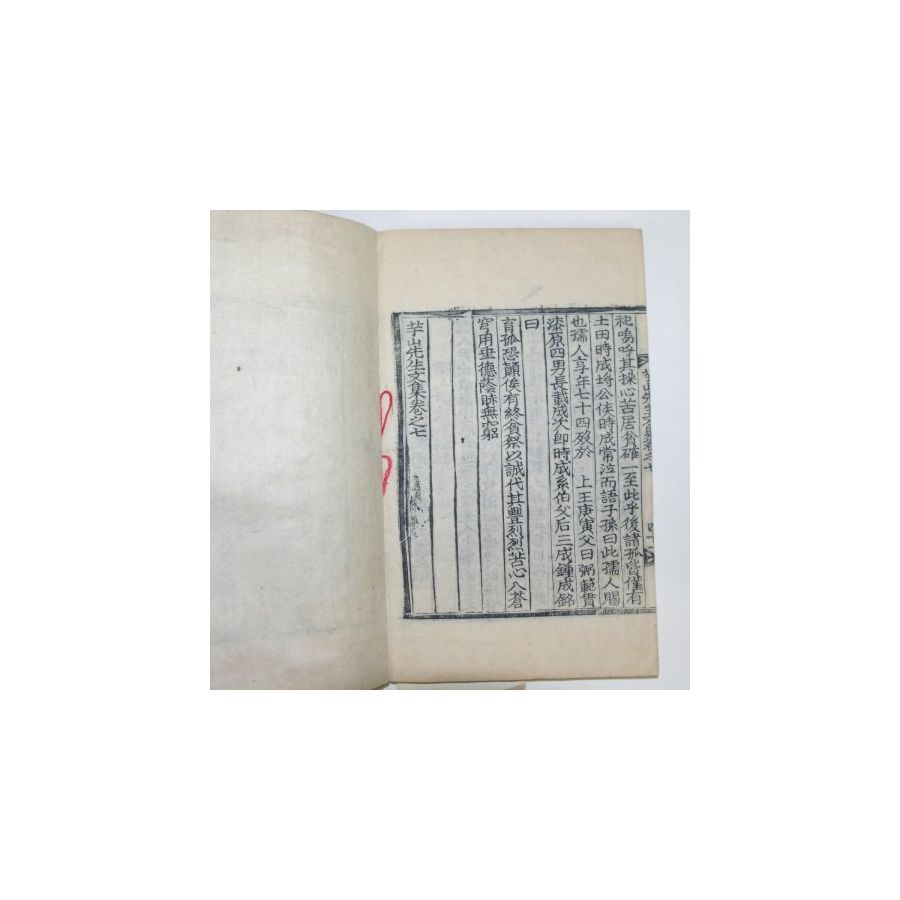 祀嗚呼其操心苦居貧確一至此乎後諸孤皆僅有
土田時成將公俟時成常泣而語子孫曰此孺人賜
也孺人享年七十四歿於 上王庚寅父曰弼範貫
漆原四男長載成次卽時成系伯父后三成鍾成銘
曰
育孤恐顚俟有終貧祭以誠代其豊烈烈苦心入蒼
穹用垂德蔭眎無窮
芋山先生文集卷之七